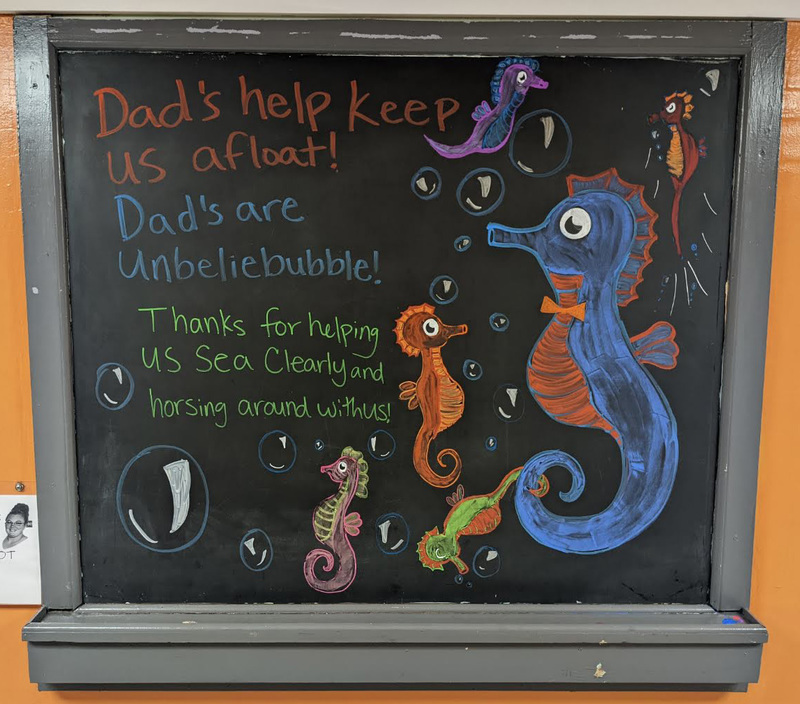 Dad's help keep
us afloat!
Dad's are
Unbeliebubble!
Thanks for helping
us Sea Clearly and
horsing around with us!
OT